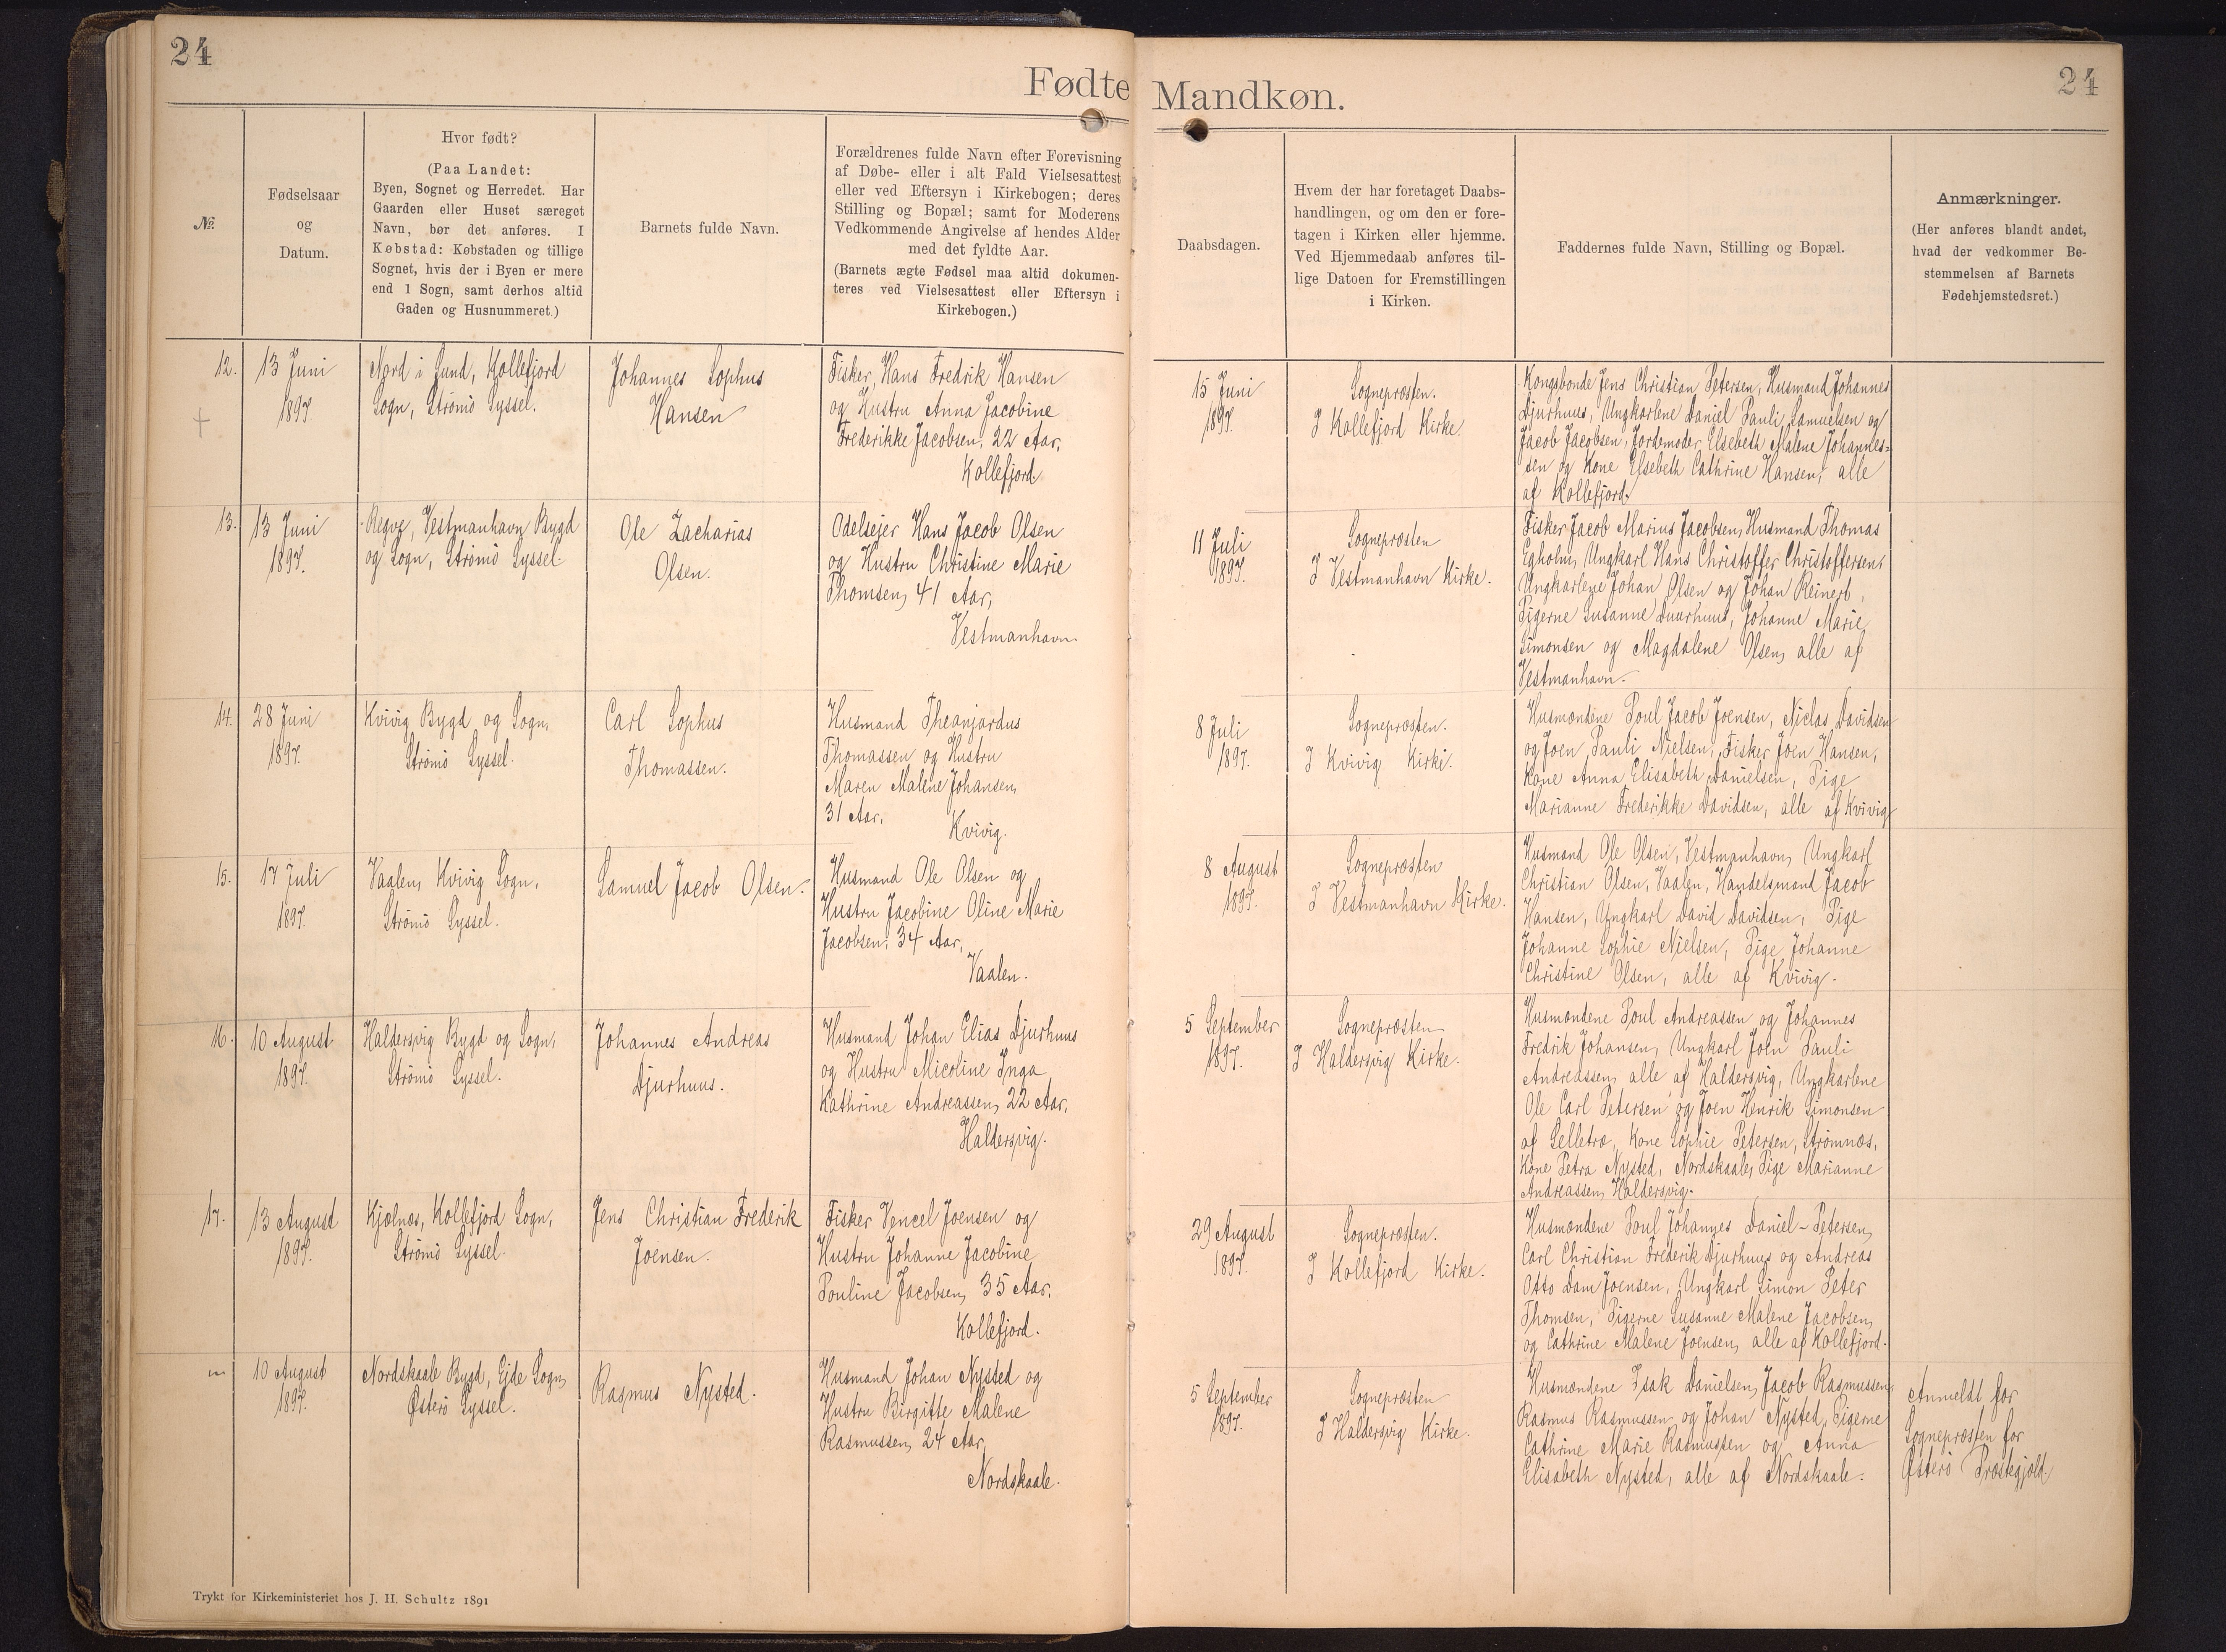 24
24
Fødte Mandkøn.
№.
Fødselsaar
og
Datum.
Hvor født?
(Paa Landet:
Byen, Sognet og Herredet. Har
Gaarden eller Huset særeget
Navn, bør det anføres. I
Købstad: Købstaden og tillige
Sognet, hvis der i Byen er mere
end 1 Sogn, samt derhos altid
Gaden og Husnummeret.)
Barnets fulde Navn.
Forældrenes fulde Navn efter Forevisning
af Døbe- eller i alt Fald Vielsesattest
eller ved Eftersyn i Kirkebogen; deres
Stilling og Bopæl; samt for Moderens
Vedkommende Angivelse af hendes Alder
med det fyldte Aar.
(Barnets ægte Fødsel maa altid dokumen-
teres ved Vielsesattest eller Eftersyn i
Kirkebogen.)
Daabsdagen.
Hvem der har foretaget Daabs-
handlingen, og om den er fore-
tagen i Kirken eller hjemme.
Ved Hjemmedaab anføres til-
lige Datoen for Fremstillingen
i Kirken.
Faddernes fulde Navn, Stilling og Bopæl.
Anmærkninger.
(Her anføres blandt andet,
hvad der vedkommer Be-
stemmelsen af Barnets
Fødehjemstedsret.)
12.
13 Juni
1897.
Nord i Sund, Kollefjord
Sogn, Strömö Syssel.
Johannes Sophus
Hansen
Fisker, Hans Fredrik Hansen
og Hustru Anna Jacobine
Frederikke Jacobsen, 22 Aar,
Kollefjord.
15 Juni
1897.
Sognepræsten.
I Kollefjord Kirke.
Kongsbonde Jens Christian Petersen, Husmand Johannes
Djurhuus, Ungkarlene Daniel Pauli Samuelsen og
Jacob Jacobsen, Jordemoder Elsebeth Malene Johannes-
sen og Kone Elsebeth Cathrine Hansen, alle
af Kollefjord.
13.
13 Juni
1897.
Vestmanhavn Bygd
og Sogn, Strömö Syssel.
Ole Zacharias
Olsen.
Odelsejer Hans Jacob Olsen
og Hustru Christine Marie
Thomsen, 41 Aar,
Vestmanhavn.
11 Juli
1897.
Sognepræsten
I Vestmanhavn Kirke.
Fisker Jacob Marius Jacobsen, Husmand Thomas
Egholm, Ungkarl Hans Christoffer Christoffersen,
Ungkarlene Johan Olsen og Johan Reinert,
Pigerne Susanne Duurhuus, Johanne Marie
Simonsen og Magdalene Olsen, alle af
Vestmanhavn.
14.
28 Juni
1897.
Kvivig Bygd og Sogn,
Strömö Syssel.
Carl Sophus
Thomassen.
Husmand Theanjardus
Thomassen og Hustru
Maren Malene Johansen,
31 Aar,
Kvivig.
8 Juli
1897.
Sognepræsten.
I Kvivig Kirke.
Husmændene Poul Jacob Joensen, Niclas Davidsen
og Joen Pauli Nielsen, Fisker Joen Hansen,
Kone Anna Elisabeth Danielsen, Pige
Marianne Frederikke Davidsen, alle af Kvivig
15.
17 Juli
1897.
Vaalen, Kvivig Sogn,
Strömö Syssel.
Samuel Jacob Olsen.
Husmand Ole Olsen og
Hustru Jacobine Oline Marie
Jacobsen, 34 Aar,
Vaalen.
8 August
1897.
Sognepræsten
I Vestmanhavn Kirke.
Husmand Ole Olsen, Vestmanhavn, Ungkarl
Christian Olsen, Vaalen, Handelsmand Jacob
Hansen, Ungkarl David Davidsen, Pige
Johanne Sophie Nielsen, Pige Johanne
Christine Olsen, alle af Kvivig.
16.
10 August
1897.
Haldersvig Bygd og Sogn,
Strömö Syssel.
Johannes Andreas
Djurhuus.
Husmand Johan Elias Djurhuus
og Hustru Micoline Inga
Kathrine Andreassen, 22 Aar,
Haldersvig.
5 September
1897.
Sognepræsten
I Haldersvig Kirke.
Husmændene Poul Andreassen og Johannes
Fredrik Johansen, Ungkarl Joen Pauli
Andreassen, alle af Haldersvig, Ungkarlene
Ole Carl Petersen og Joen Henrik Simonsen
af Selletræ, Kone Sophie Petersen, Strømnæs,
Kone Petra Nysted, Nordskaale, Pige Marianne
Andreassen, Haldersvig.
17.
13 August
1897.
Kjælnæs, Kollefjord Sogn,
Strömö Syssel.
Jens Christian Frederik
Joensen.
Fisker Vencel Joensen og
Hustru Johanne Jacobine
Pouline Jacobsen, 35 Aar,
Kollefjord.
29 August
1897.
Sognepræsten.
I Kollefjord Kirke.
Husmændene Poul Johannes Daniel-Petersen,
Carl Christian Frederik Djurhuus og Andreas
Otto Dam Joensen, Ungkarl Simon Peter
Thomsen, Pigerne Susanne Malene Jacobsen,
og Cathrine Malene Joensen, alle af Kollefjord.
10 August
1897.
Nordskaale Bygd, Ejde Sogn,
Østerö Syssel.
Rasmus Nysted.
Husmand Johan Nysted og
Hustru Birgitte Malene
Rasmussen, 24 Aar,
Nordskaale.
5 September
1897.
Sognepræsten
I Haldersvig Kirke.
Husmændene Isak Danielsen, Jacob Rasmussen,
Rasmus Rasmussen og Johan Nysted, Pigerne
Cathrine Marie Rasmussen og Anna
Elisabeth Nysted, alle af Nordskaale.
Anmeldt for
Sognepræsten for
Østerö Præstegjeld
Trykt for Kirkeministeriet hos J. H. Schultz 1891